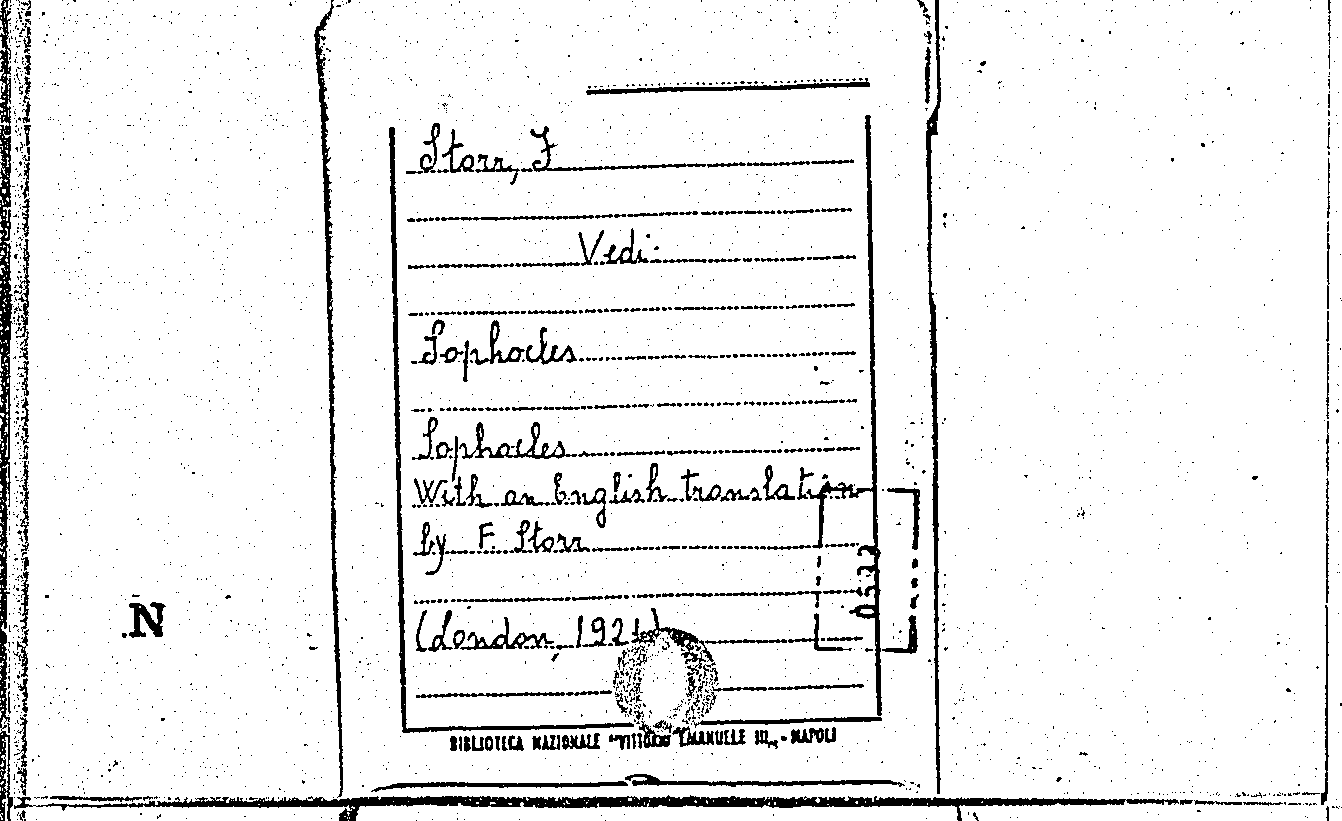 Storr, F
Vedi:
Sophocles
Sophocles
With an English translation
by F. Storr
(London, 1921)
0522
N
BIBLIOTECA NAZIONALE "VITTORIO EMANUELE III" - NAPOLI